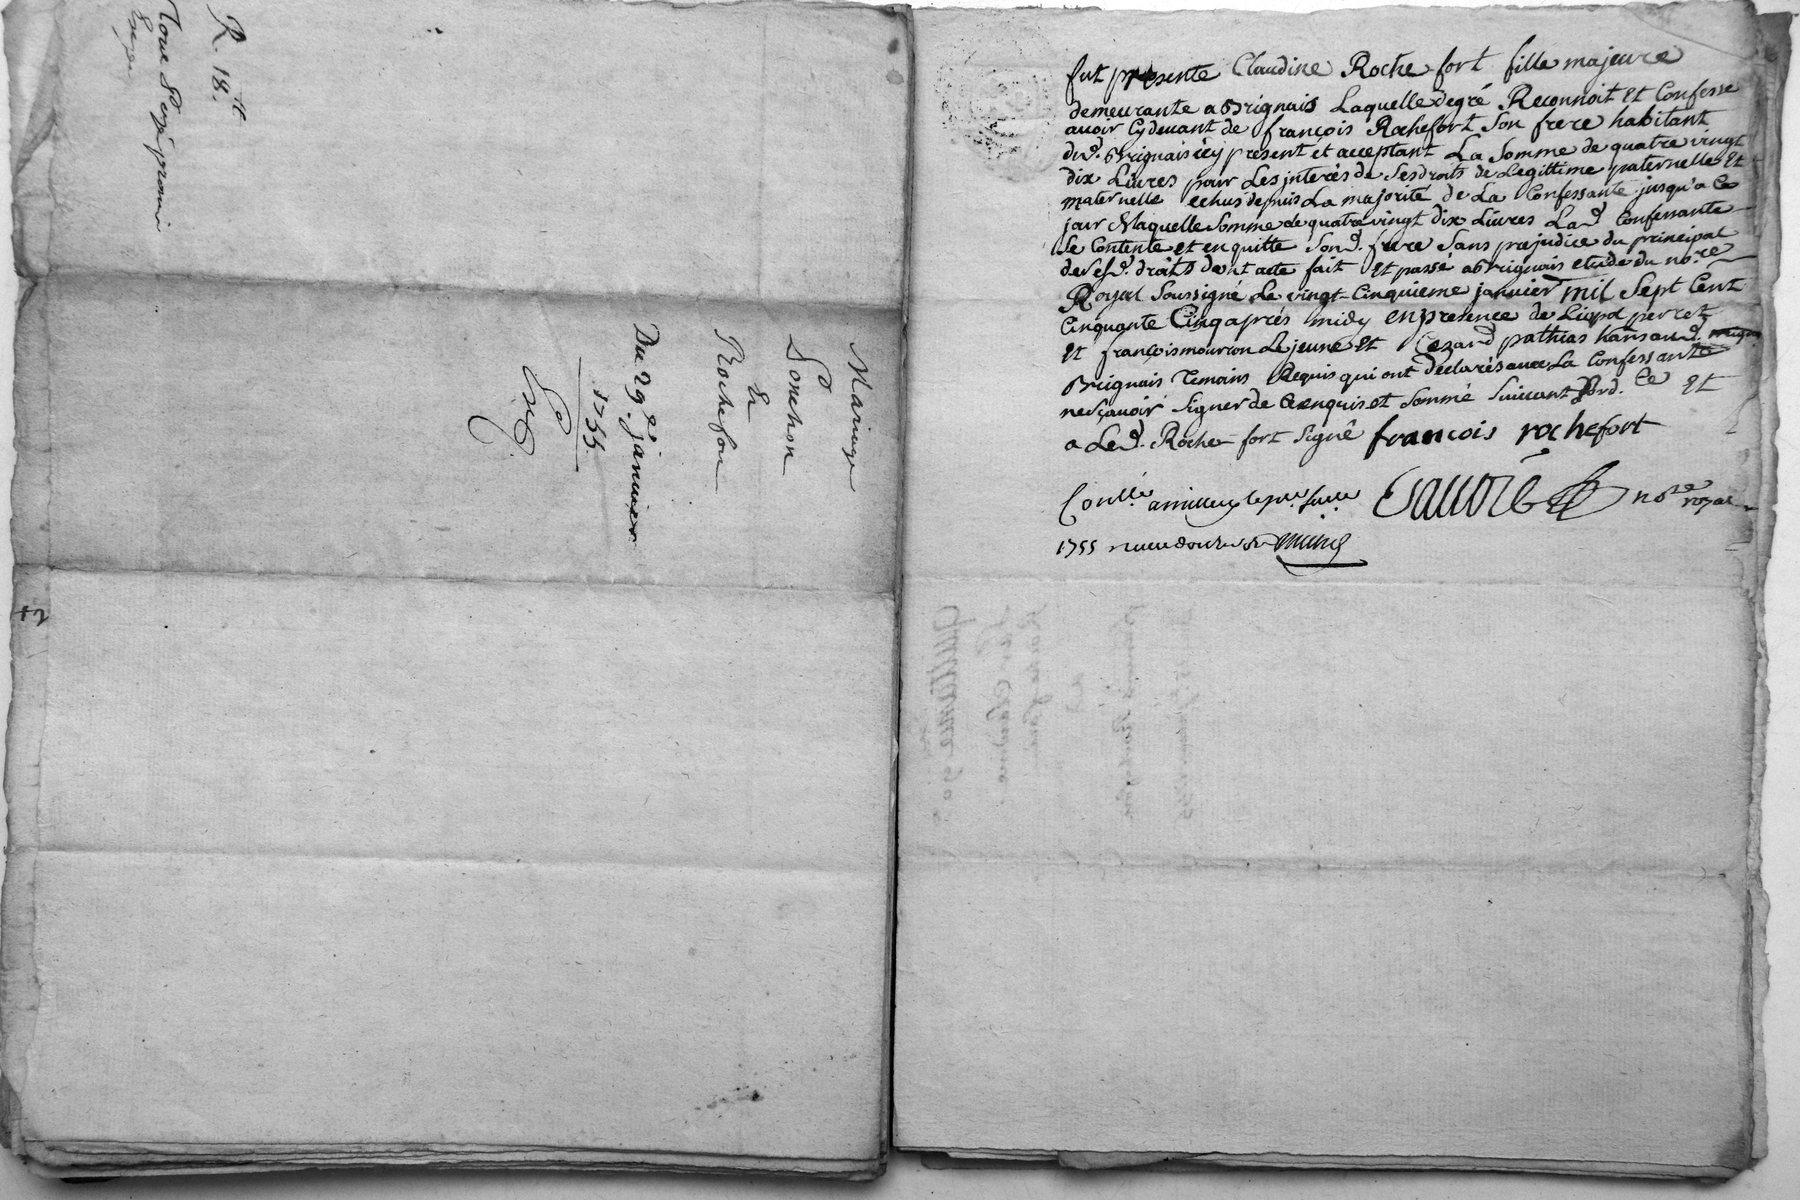 R. 18.tt
Mariage
Souchon
&
Rochefort
Du 29.e janvier
1755.
fut presente Claudine Roche fort fille majeure
demeurante a Brignais Laquelle degré Reconnoit et Confesse
avoir Cydevant de françois Rochefort Son frere habitant
dud. Brignais icy present et acceptant La Somme de quatre vingt
dix Livres pour Les interés de Ses droits de Legittime paternelle et
maternelle echus depuis La majorité de La Confessante jusqu'a Ce
jour de laquelle Somme de quatre vingt dix Livres Lad. Confessante
Se Contente et en quitte Sond. frere Sans prejudice du principal
de Sesd. droits dont acte fait et passé a Brignais etude du no.re
Royal Soussigné Le vingt-Cinquieme janvier mil Sept Cent
Cinquante Cinq après midy en presence de perret
et françois mourron Le jeune et
Brignais Temoins Requis qui ont declarés avec La Confessante
ne Sçavoir Signer de Ce enquis et Sommé Suivant L'ord.ce et
a Led. Roche fort Signé françois rochefort
Conllé a le
no.re royal
1755